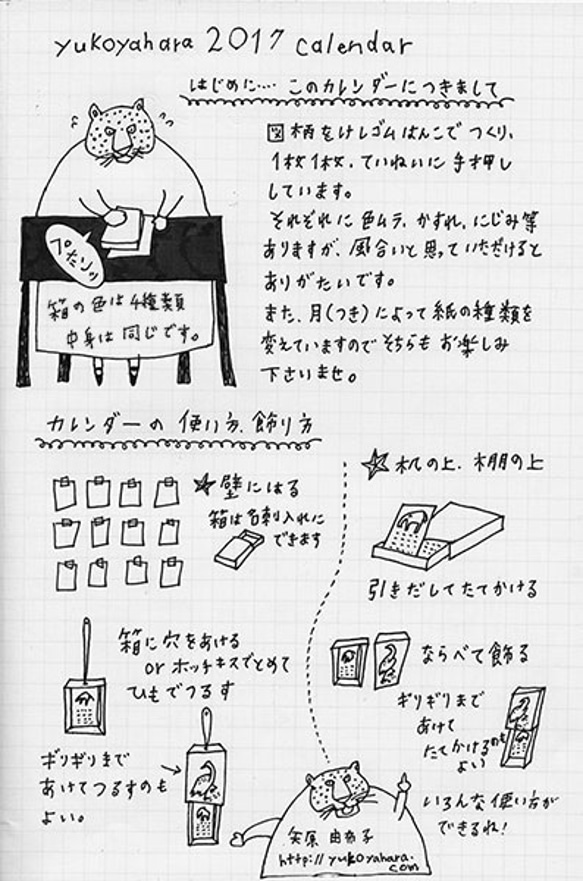 yukoyahara 2017 calendar
はじめに… このカレンダーにつきまして
図柄をけしゴムはんこでつくり、
1枚1枚、ていねいに手押し
しています。
それぞれに色ムラ、かすれ、にじみ等
ありますが、風合いと思っていただけると
ありがたいです。
また、月(つき)によって紙の種類を
変えていますのでそちらもお楽しみ
下さいませ。
ペたンッ
箱の色は4種類
中身は同じです。
カレンダーの使い方、飾り方
☆壁にはる
箱は名刺入れに
できます
箱に穴をあける
orホッチキスでとめて
ひもでつるす
ギリギリまで
あけてつるすのも
よい。
☆机の上、棚の上
引きだしてたてかける
ならべて飾る
ギリギリまで
あけて
たてかけるのも
よい
いろんな使い方が
できるね!
矢原由布子
http://yukoyahara.
com